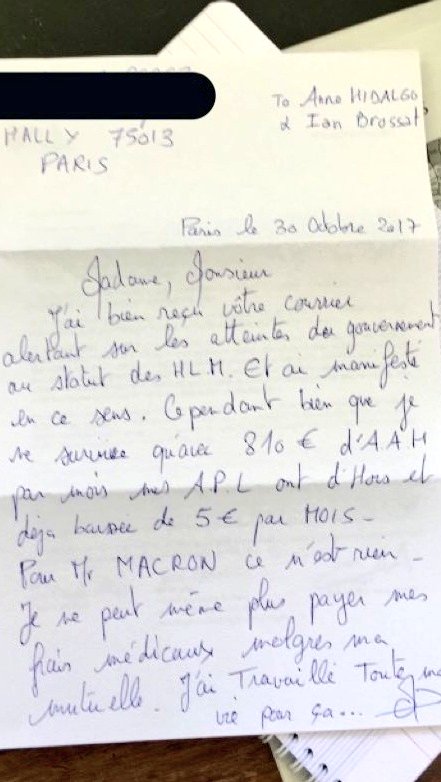 To Anne HIDALGO
& Ian Brossat
MALLY 75013
PARIS
Paris le 30 Octobre 2017
Madame, Monsieur
J'ai bien reçu vôtre courrier
alertant sur les atteintes du gouvernement
au statut des HLM. Et ai manifesté
en ce sens. Cependant bien que je
ne survive qu'avec 810 € d'AAH
par mois mes A.P.L ont d'Hors et
déjà baissée de 5 € par MOIS -
Pour Mr MACRON ce n'est rien -
Je ne peut même plus payer mes
frais médicaux malgres ma
mutuelle. J'ai Travaillé Toute ma
vie pour ça...